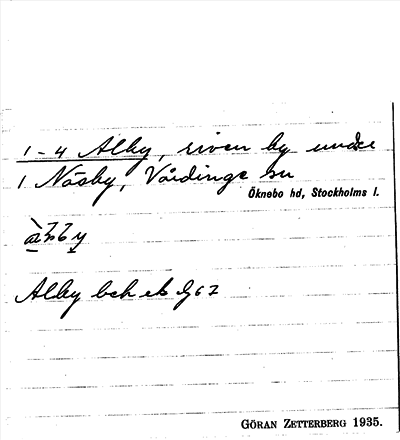 1-4 Alby, riven by under
1 Näsby, Vårdinge sn
Öknebo hd, Stockholms l.
Alby beb ek
GÖRAN ZETTERBERG 1935.